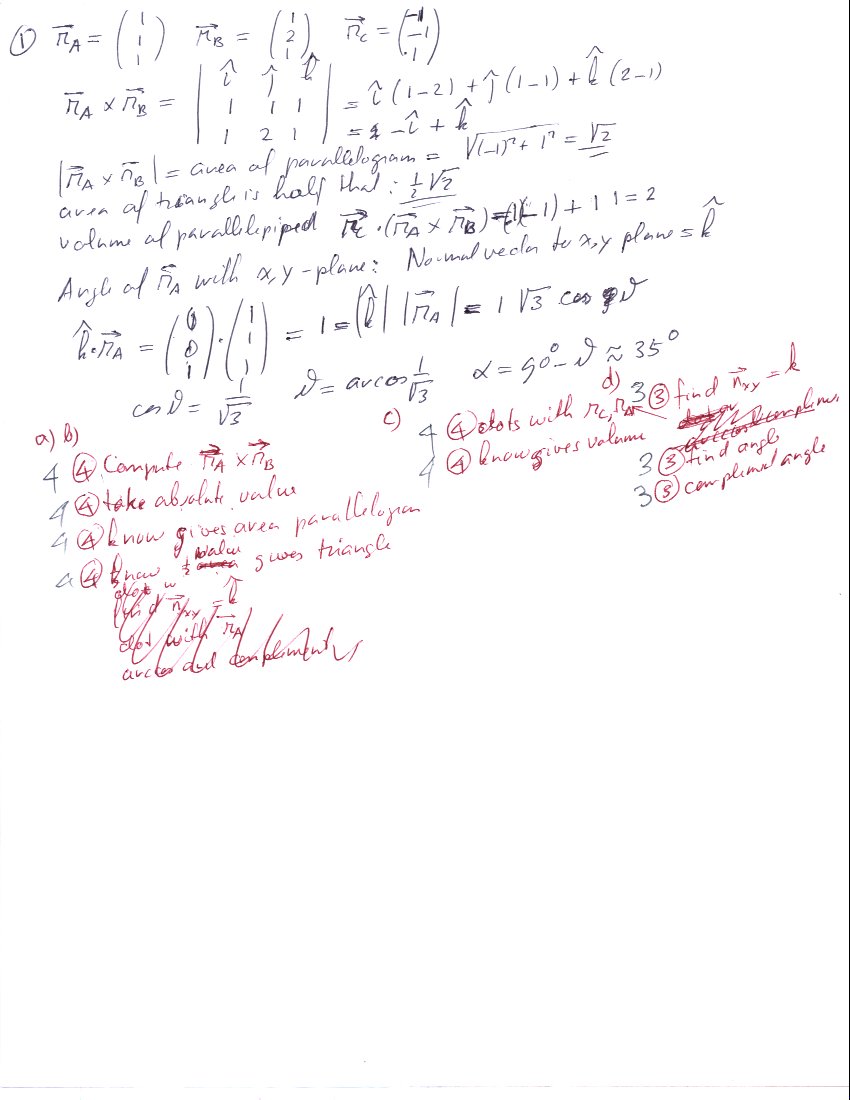 ① r⃗_A = (1 1 1) r⃗_B = (1 2 1) r⃗_C = (-1 -1 1)
r⃗_A × r⃗_B = | î ĵ k̂ | 1 1 1 | 1 2 1 | = î(1-2) + ĵ(1-1) + k̂(2-1)
= -î + k̂
|r⃗_A × r⃗_B| = area of parallelogram = √((-1)² + 1²) = √2
area of triangle is half that: ½√2
volume of parallelepiped r⃗_C · (r⃗_A × r⃗_B) = (-1)(-1) + 1 1 = 2
Angle of r⃗_A with x,y-plane: Normal vector to x,y plane = k̂
k̂·r⃗_A = (0 0 1)·(1 1 1) = 1 = |k̂| |r⃗_A| = 1 √3 cos ϑ
cos ϑ = 1/√3 ϑ = arcos 1/√3 α = 90° - ϑ ≈ 35°
a) b)
4 ④ Compute r⃗_A × r⃗_B
4 ④ take absolute value
4 ④ know gives area parallelogram
4 ④ know ½ value gives triangle
dot w
find n⃗_xy = k̂
dot with r⃗_A
arccos and complement
c)
4 ④ dots with r_C, r_A
4 ④ know gives volume
d)
3 ③ find n⃗_xy = k
3 ③ find angle
3 ③ complement angle